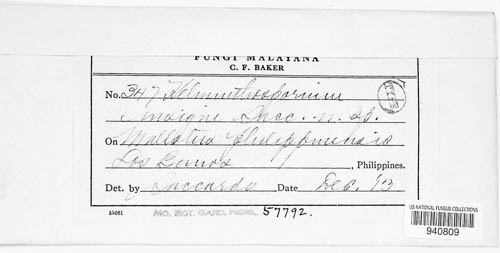 FUNGI MALAYANA
C. F. BAKER
No. 347 Helminthosporium
insigne Sacc. n. sp.
On Mallotus Philippinensis
Los Banos, Philippines.
Det. by Saccardo Date Dec. 13
MO. BOT. GARD. HERB. 57792.
US NATIONAL FUNGUS COLLECTIONS
940809